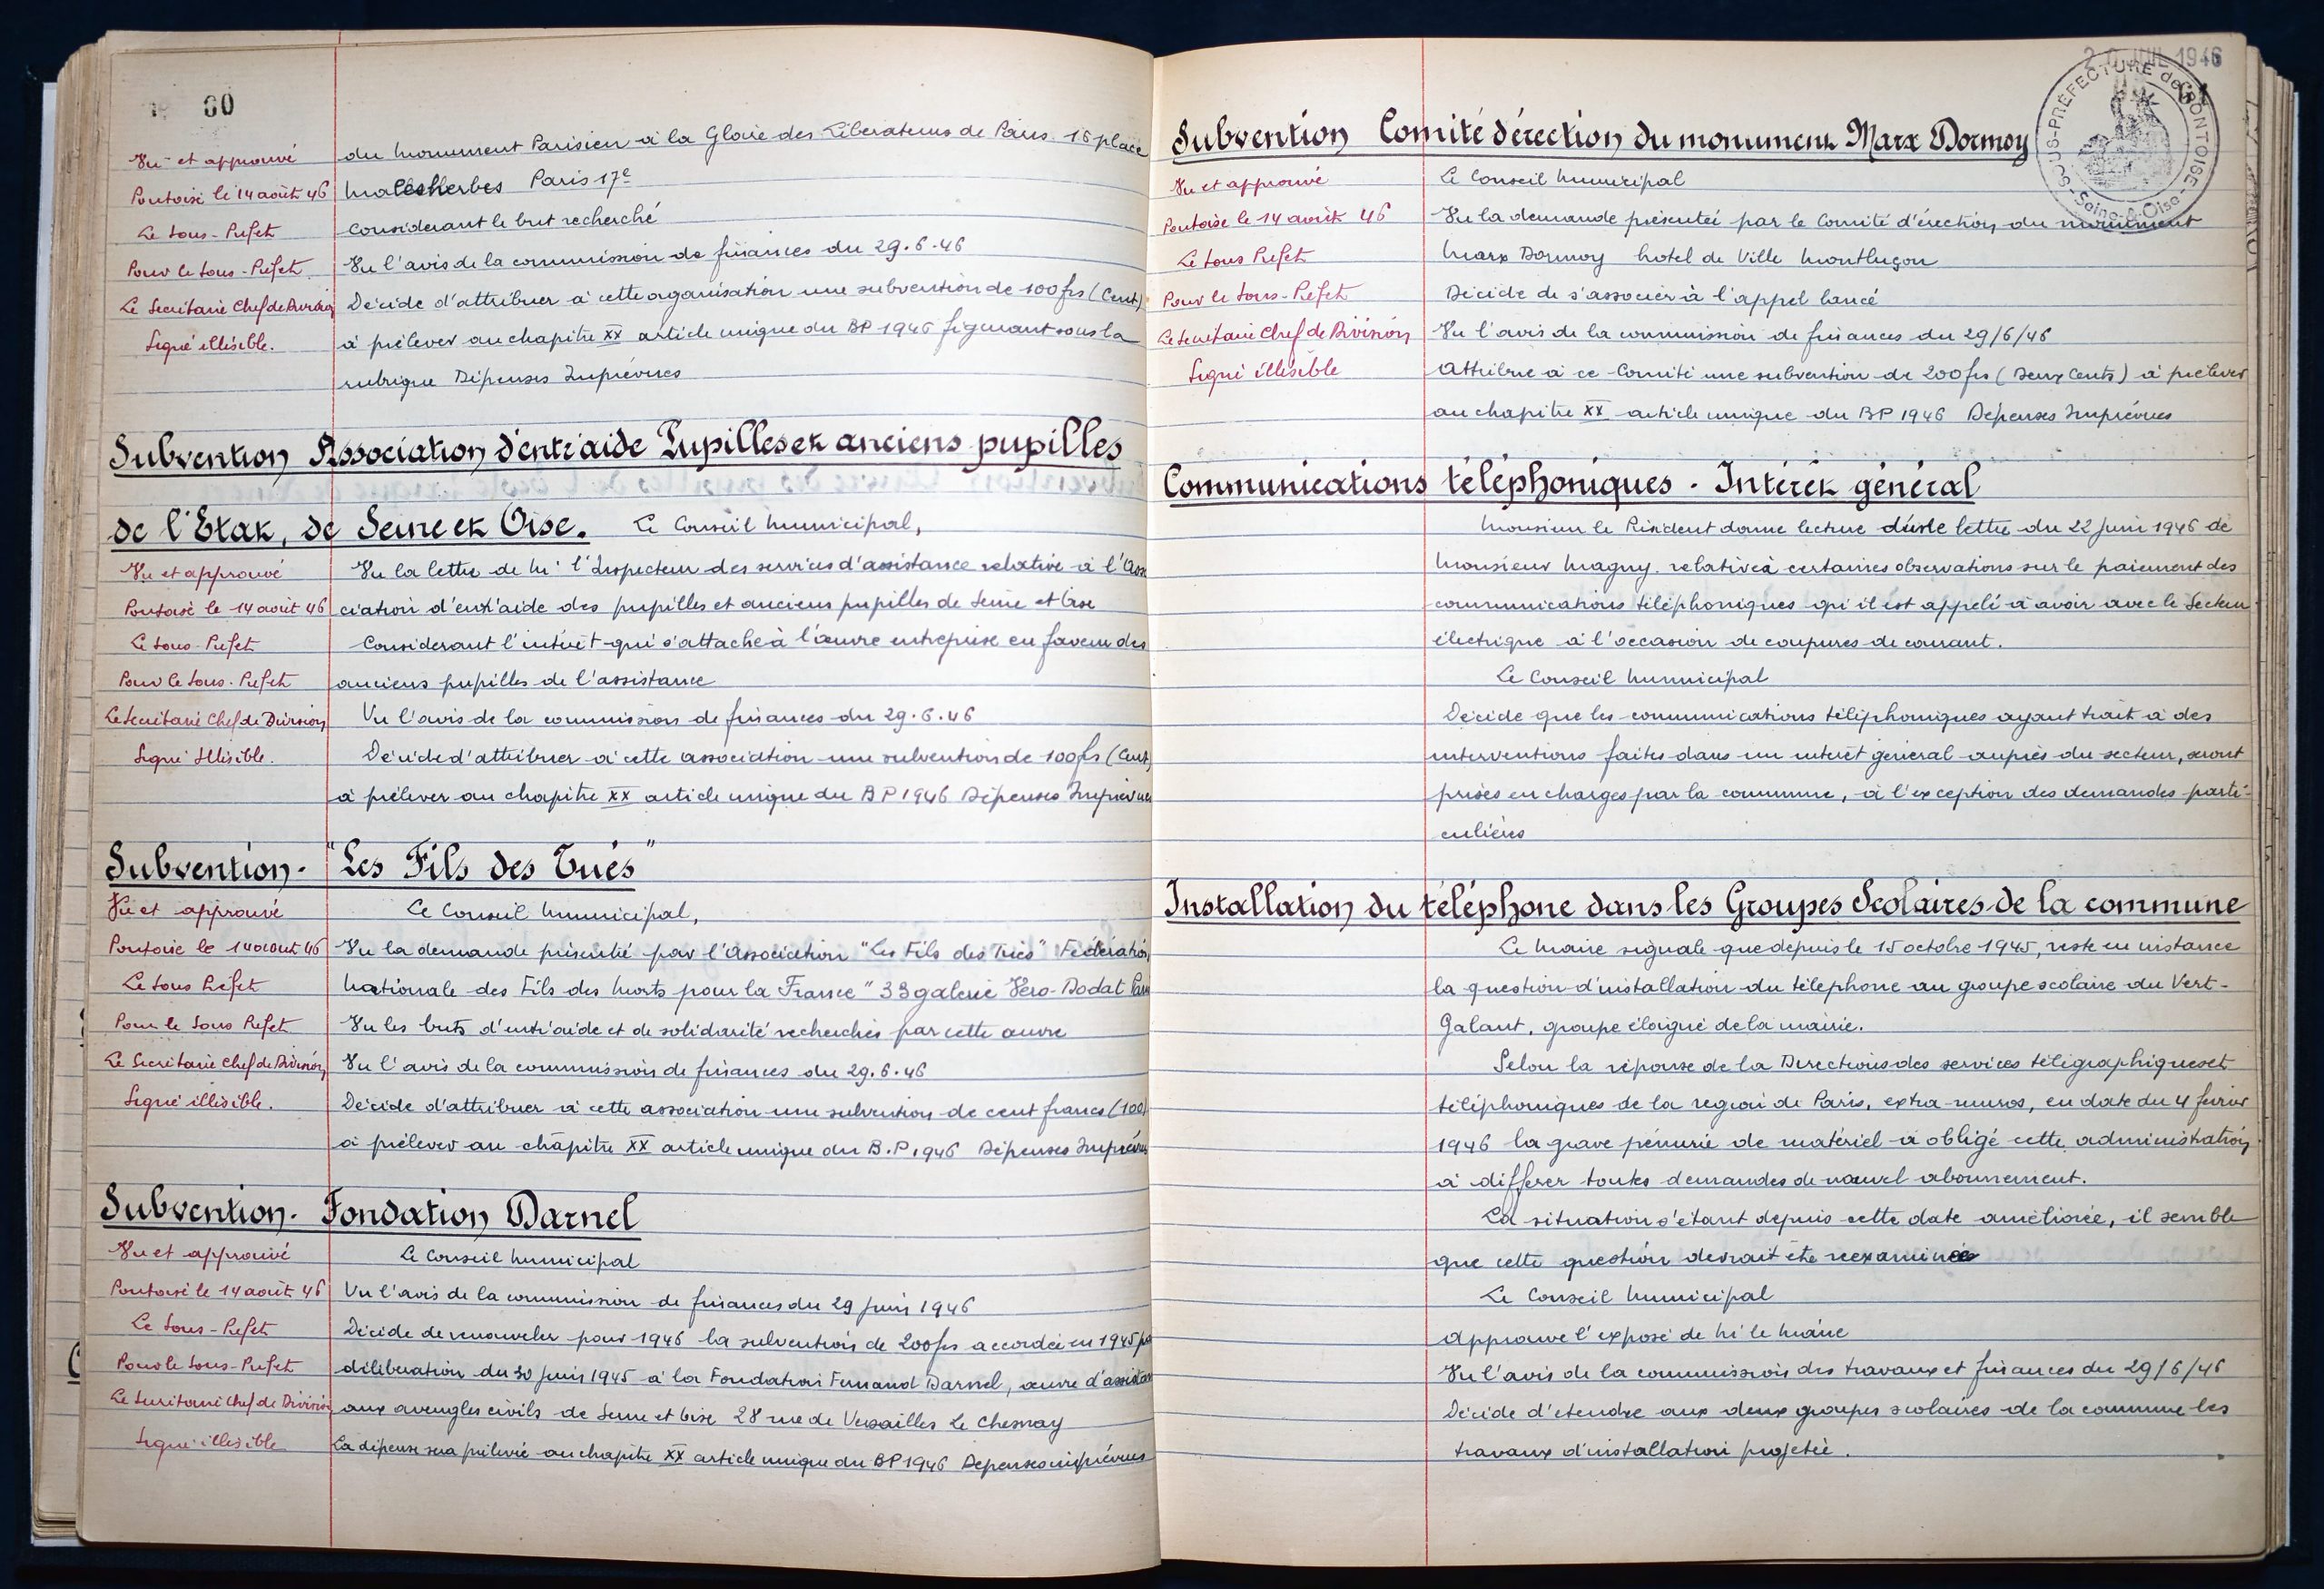 60
du Monument Parisien à la Gloire des Libérateurs de Paris 16 place
Vu et approuvé
Malesherbes Paris 17e
Pontoise le 14 août 46
Considerant le but recherché
Le Sous-Prefet
Vu l'avis de la commission de finances du 29.6.46
Pour le Sous-Préfet
Décide d'attribuer à cette organisation une subvention de 100 frs (Cent)
Le Secrétaire Chef de Division
à prélever au chapitre XX article unique du BP 1946 figurant sous la
Signé illisible.
rubrique Dépenses Imprévues
Subvention Association d'entr'aide Pupilles et anciens pupilles
de l'Etat, de Seine et Oise. Le Conseil Municipal,
Vu et approuvé
Vu la lettre de Mr l'Inspecteur des services d'assistance relative à l'Asso
Pontoise le 14 août 46
ciation d'entr'aide des pupilles et anciens pupilles de Seine et Oise
Le Sous-Préfet
Considerant l'intérêt qui s'attache à l'œuvre entreprise en faveur des
Pour le Sous-Préfet
anciens pupilles de l'assistance
Le Secrétaire Chef de Division
Vu l'avis de la commission de finances du 29.6.46
Signé Illisible.
Décide d'attribuer à cette association une subvention de 100 frs (Cent)
à prélever au chapitre XX article unique du BP 1946 Dépenses Imprévues
Subvention. "Les Fils des Tués"
Vu et approuvé
Le Conseil Municipal,
Pontoise le 14 aout 46
Vu la demande présentée par l'Association "Les Fils des Tués" Fédération
Le Sous Préfet
Nationale des Fils des Morts pour la France" 33 galerie Véro-Dodat Paris
Pour le Sous Prefet
Vu les buts d'entr'aide et de solidarité recherchés par cette œuvre
Le Secrétaire Chef de Division
Vu l'avis de la commission de finances du 29.6.46
Signé illisible.
Décide d'attribuer à cette association une subvention de cent francs (100)
à prélever au chapitre XX article unique du B.P 1946 Dépenses Imprévues
Subvention. Fondation Darnel
Vu et approuvé
Le Conseil Municipal
Pontoise le 14 août 46
Vu l'avis de la commission de finances du 29 Juin 1946
Le Sous-Préfet
Décide de renouveler pour 1946 la subvention de 200 frs accordée en 1945 par
Pour le Sous-Préfet
délibération du 30 juin 1945 à la Fondation Fernand Darnel, œuvre d'assistance
Le Secrétaire Chef de Division
aux aveugles civils de Seine et Oise 28 rue de Versailles Le Chesnay
Signé illisible
La dépense sera prélevée au chapitre XX article unique du BP 1946 Depenses imprévues
20 JUIL 1946
61
SOUS-PRÉFECTURE de PONTOISE
Seine-&-Oise
Subvention Comité dérection du monument Marx Dormoy
Vu et approuvé
Le Conseil Municipal
Pontoise le 14 août 46
Vu la demande présentée par le Comité d'érection du monument
Le Sous Prefet
Marx Dormoy hotel de Ville Montluçon
Pour le Sous-Préfet
Décide de s'associer à l'appel lancé
Le Secrétaire Chef de Division
Vu l'avis de la commission de finances du 29/6/46
Signé illisible
Attribue à ce Comité une subvention de 200 frs (Deux Cents) à prélever
au chapitre XX article unique du BP 1946 Dépenses Imprévues
Communications téléphoniques. Intérêt général
Monsieur le Président donne lecture d'une lettre du 22 Juin 1946 de
Monsieur Magny. relative à certaines observations sur le paiement des
communications téléphoniques qu'il est appelé à avoir avec le Secteur
électrique à l'occasion de coupures de courant.
Le Conseil Municipal
Décide que les communications téléphoniques ayant trait à des
interventions faites dans un intérêt général auprès du secteur, seront
prises en charges par la commune, à l'exception des demandes parti-
culières
Installation du téléphone dans les Groupes Scolaires de la commune
Le Maire signale que depuis le 15 octobre 1945, reste en instance
la question d'installation du téléphone au groupe scolaire du Vert-
Galant, groupe éloigné de la mairie.
Selon la réponse de la Direction des services télégraphiques et
téléphoniques de la région de Paris, extra-muros, en date du 4 février
1946 la grave pénurie de matériel a obligé cette administration
à différer toutes demandes de nouvel abonnement.
La situation s'étant depuis cette date améliorée, il semble
que cette question devrait être reexaminée
Le Conseil Municipal
Approuve l'exposé de Mr le Maire
Vu l'avis de la commission des travaux et finances du 29/6/46
Décide d'etendre aux deux groupes scolaires de la commune les
travaux d'installation projetée.